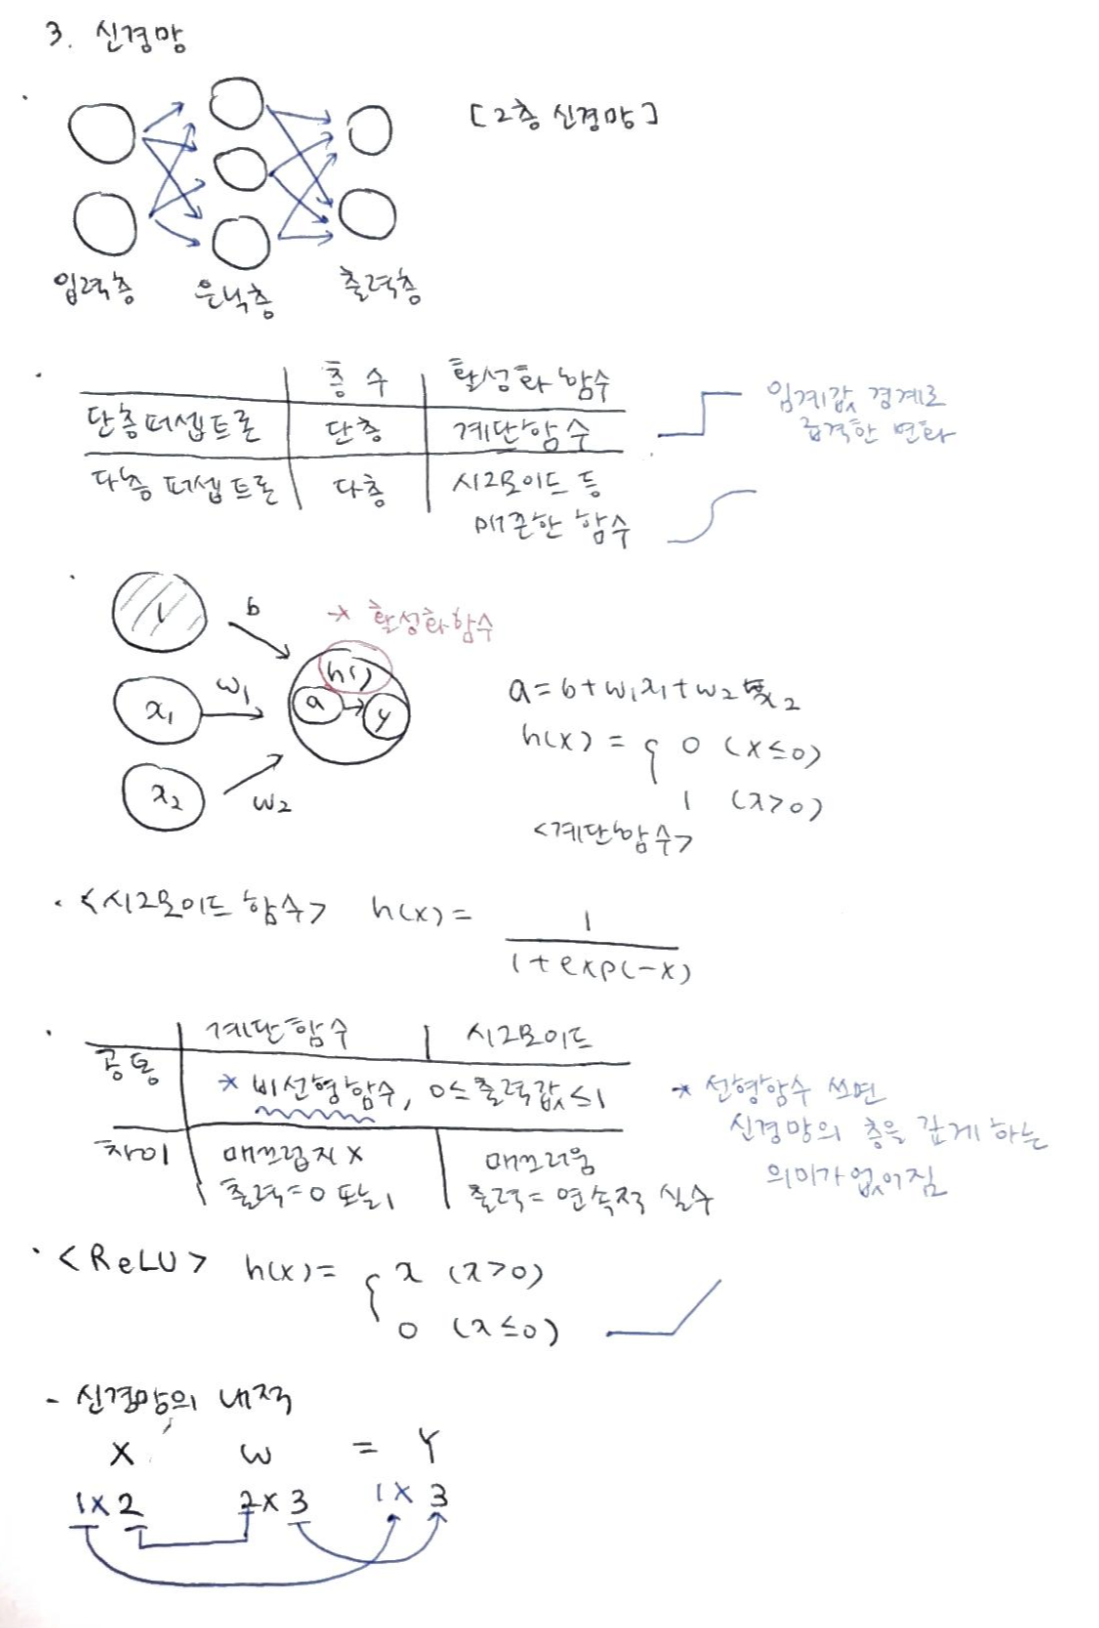 3. 신경망
[2층 신경망]
입력층 은닉층 출력층
층 수 활성화 함수
단층퍼셉트론 단층 계단함수
임계값 경계로
급격한 변화
다층 퍼셉트론 다층 시그모이드 등
매끈한 함수
1 b
* 활성화함수
h( )
x₁ w₁ a → y
x₂ w₂
a = b + w₁x₁ + w₂x₂
h(x) = { 0 (x ≤ 0)
1 (x > 0)
<계단함수>
· <시그모이드 함수> h(x) = 1
1 + exp(-x)
계단함수 시그모이드
공통 * 비선형함수, 0 ≤ 출력값 ≤ 1
* 선형함수 쓰면
신경망의 층을 깊게 하는
의미가 없어짐
차이 매끄럽지 x 매끄러움
출력 = 0 또는 1 출력 = 연속적 실수
· <ReLU> h(x) = { x (x > 0)
0 (x ≤ 0)
- 신경망의 내적
X W = Y
1 x 2 2 x 3 1 x 3